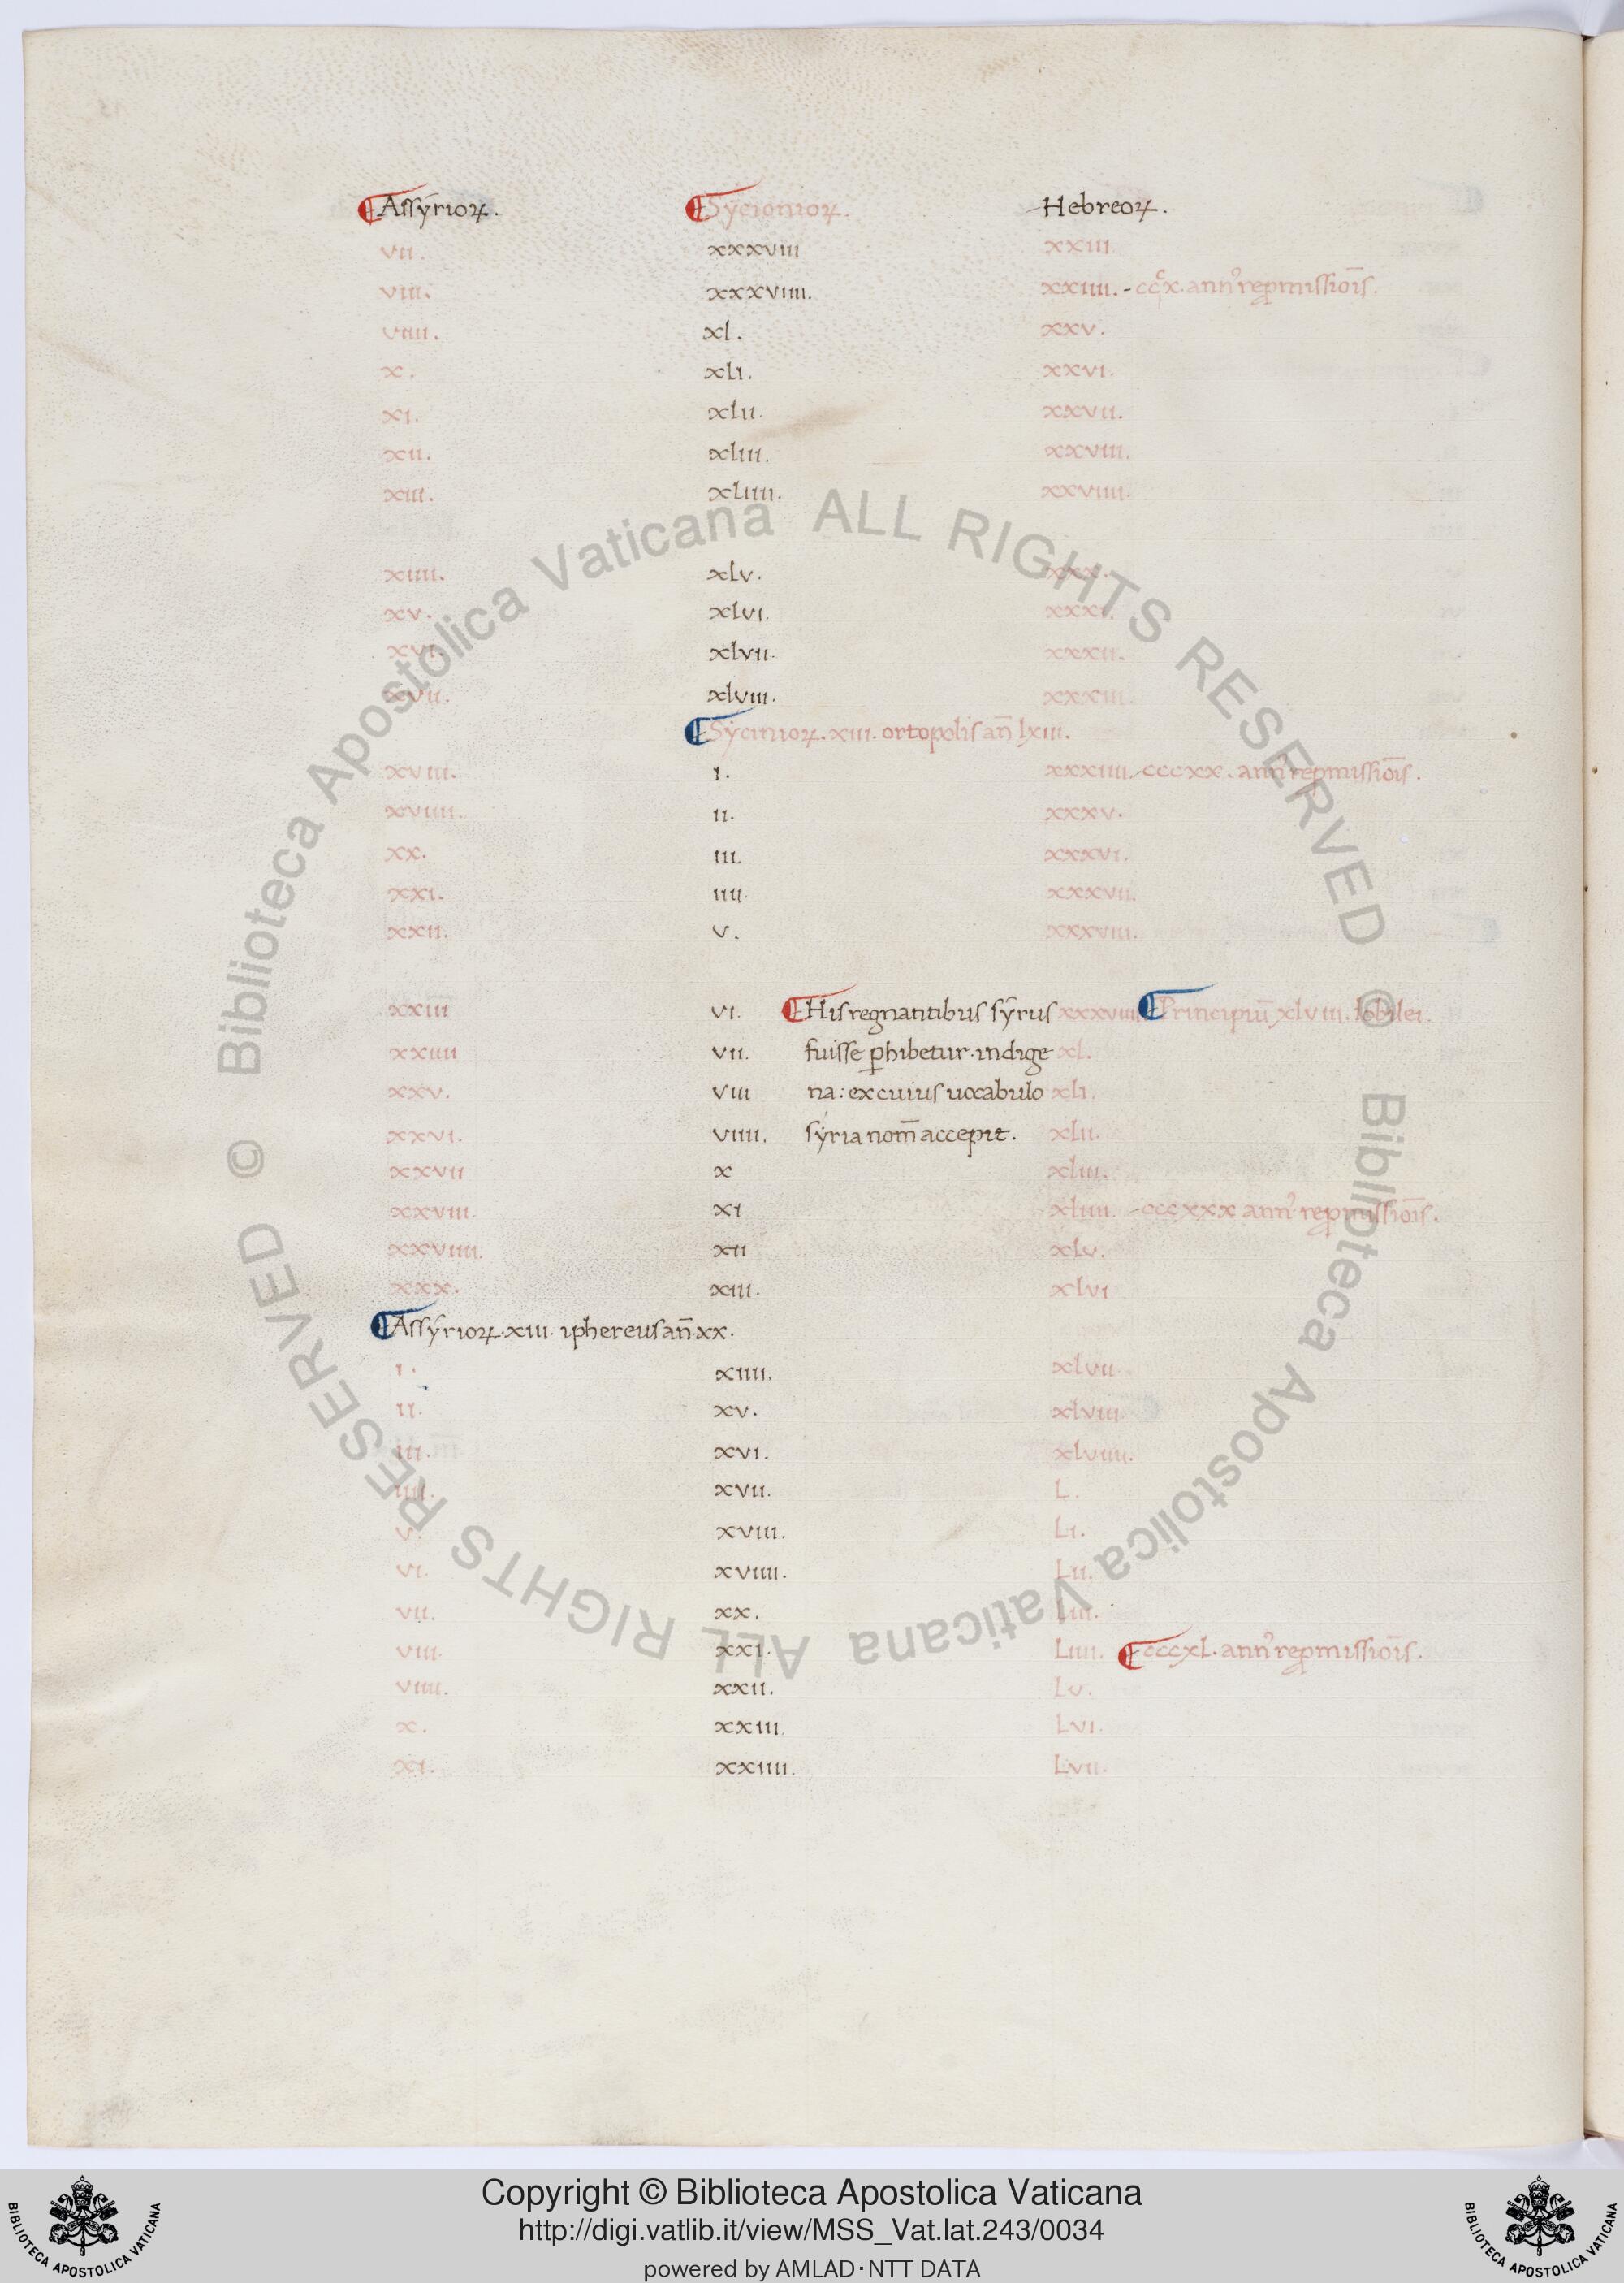 Assÿrioꝝ. Sÿcionioꝝ. Hebreoꝝ.
vii. xxxviii xxiii.
viii. xxxviiii. xxiiii. - cccx. ann᾽ rep̱missiōis.
viiii. xl. xxv.
x. xli. xxvi.
xi. xlii. xxvii.
xii. xliii. xxviii.
xiii. xliiii. xxviiii.
xiiii. xlv. xxx.
xv. xlvi. xxxi.
xvi. xlvii. xxxii.
xvii. xlviii. xxxiii.
Sÿcinioꝝ. xiii. ortopolis an̄ lxiii.
xviii. i. xxxiiii. - cccxx. ann᾽ rep̱missiōis.
xviiii. ii. xxxv.
xx. iii. xxxvi.
xxi. iiii. xxxvii.
xxii. v. xxxviii.
xxiii vi. His regnantibus sÿrus xxxviiii Principiū xlviii. Iobilei.
xxiiii vii. fuisse p̱hibetur. indige xl.
xxv. viii na: ex cuius uocabulo xli.
xxvi. viiii. sÿria nom̄ accepit. xlii.
xxvii x xliii.
xxviii. xi xliiii. - cccxxx ann᾽ rep̱missiōis.
xxviiii. xii xlv.
xxx. xiii. xlvi
Assÿrioꝝ. xiii. iphereus an̄. xx.
i. xiiii. xlvii
ii. xv. xlviii
iii. xvi. xlviiii.
iiii. xvii. L.
v. xviii. Li.
vi. xviiii. Lii.
vii. xx. Liii.
viii. xxi. Liiii. cccxL. ann᾽ rep̱missiōis.
viiii. xxii. Lv.
x. xxiii. Lvi.
xi. xxiiii. Lvii.
© Biblioteca Apostolica Vaticana ALL RIGHTS RESERVED
© Biblioteca Apostolica Vaticana ALL RIGHTS RESERVED
Copyright © Biblioteca Apostolica Vaticana
http://digi.vatlib.it/view/MSS_Vat.lat.243/0034
powered by AMLAD·NTT DATA
BIBLIOTECA APOSTOLICA VATICANA
BIBLIOTECA APOSTOLICA VATICANA